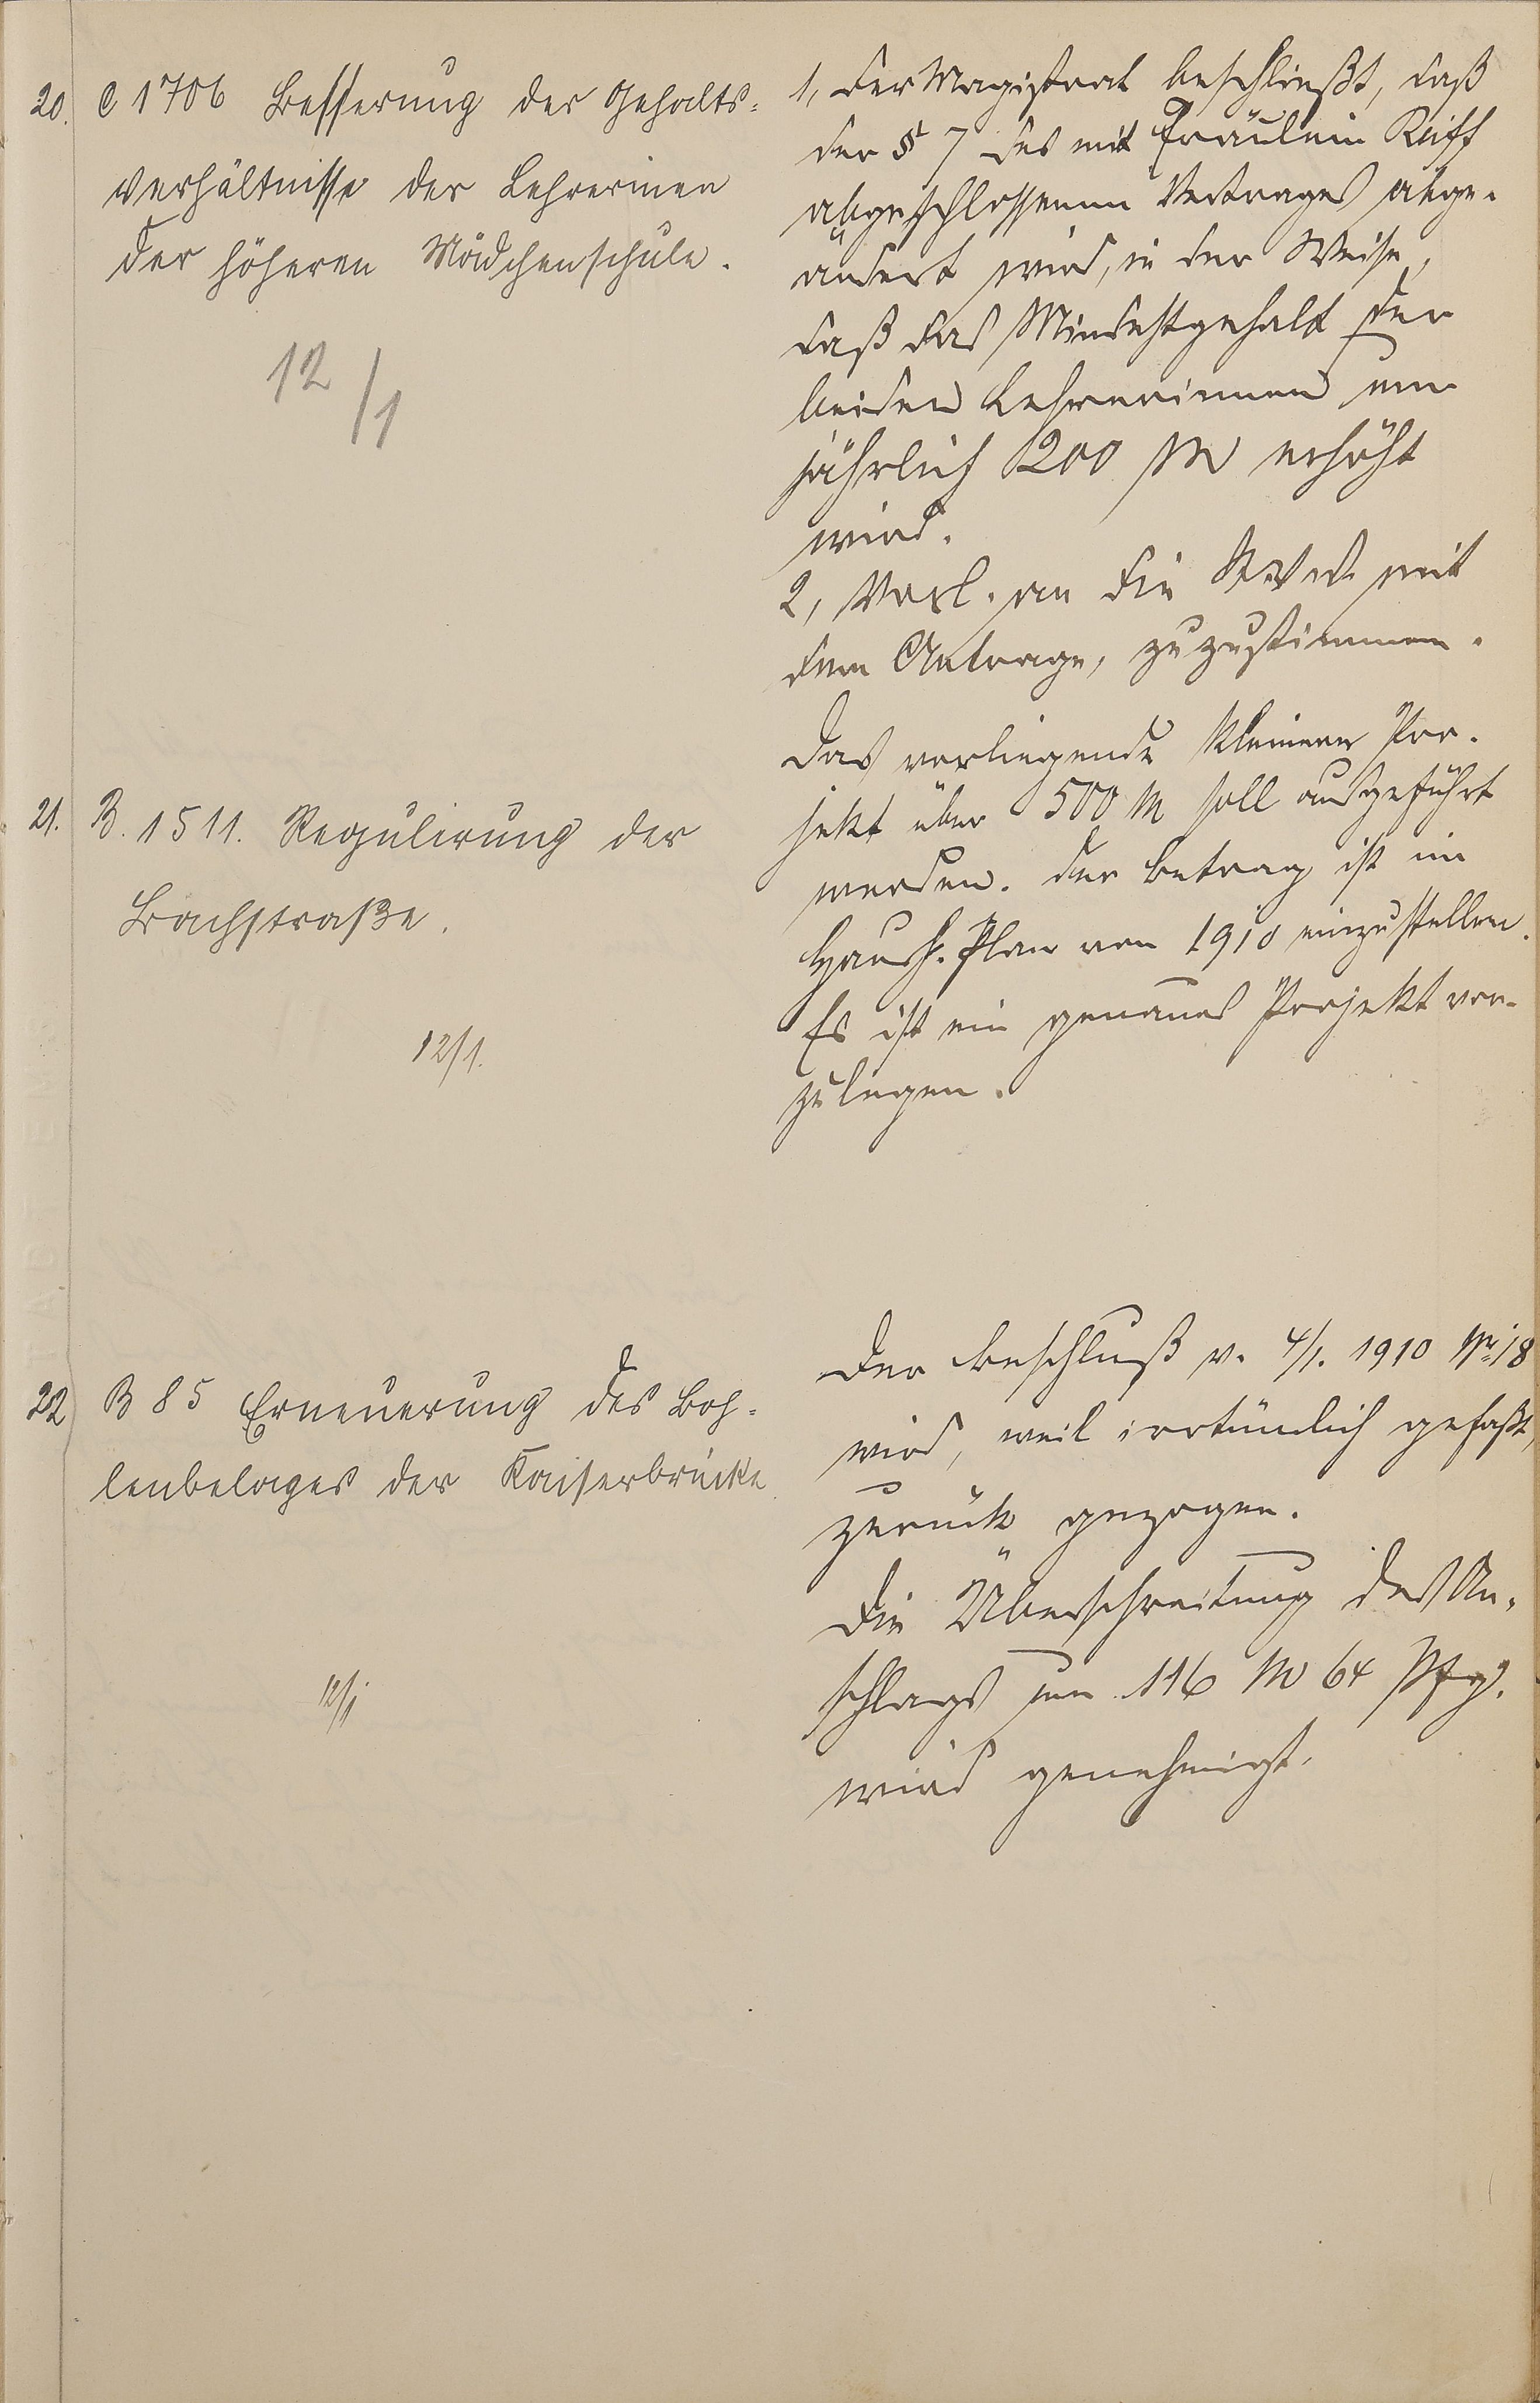 20. C 1706 Besserung der Gehalts-
verhältnisse der Lehrerinen
der höheren Mädchenschule.
12/1
1, Der Magistrat beschließt, daß
der § 7 des mit Fräulein Reiff
abgeschlossenen Vertrages abge-
ändert wird, in der Weise,
daß das Mindestgehalt der
beiden Lehrerinnen um
jährlich 200 M erhöht
wird.
2, Vorl. an die StVV. mit
dem Antrage, zuzustimmen.
21. B. 1511. Regulirung der
Bachstraße.
12/1.
Das vorliegende kleinere Pro-
jekt über 500 M soll ausgeführt
werden. Der Betrag ist im
Haush. Plan von 1910 einzustellen.
Es ist ein genaues Projekt vor-
zulegen.
22 B 85 Erneuerung des Boh-
lenbelages der Kaiserbrücke.
12/1
Der Beschluß v. 4/1. 1910 Nr. 18
wird, weil irrtümlich gefaßt,
zurück gezogen.
Die Überschreitung des An-
schlags um 116 M 64 Pfg.
wird genehmigt.